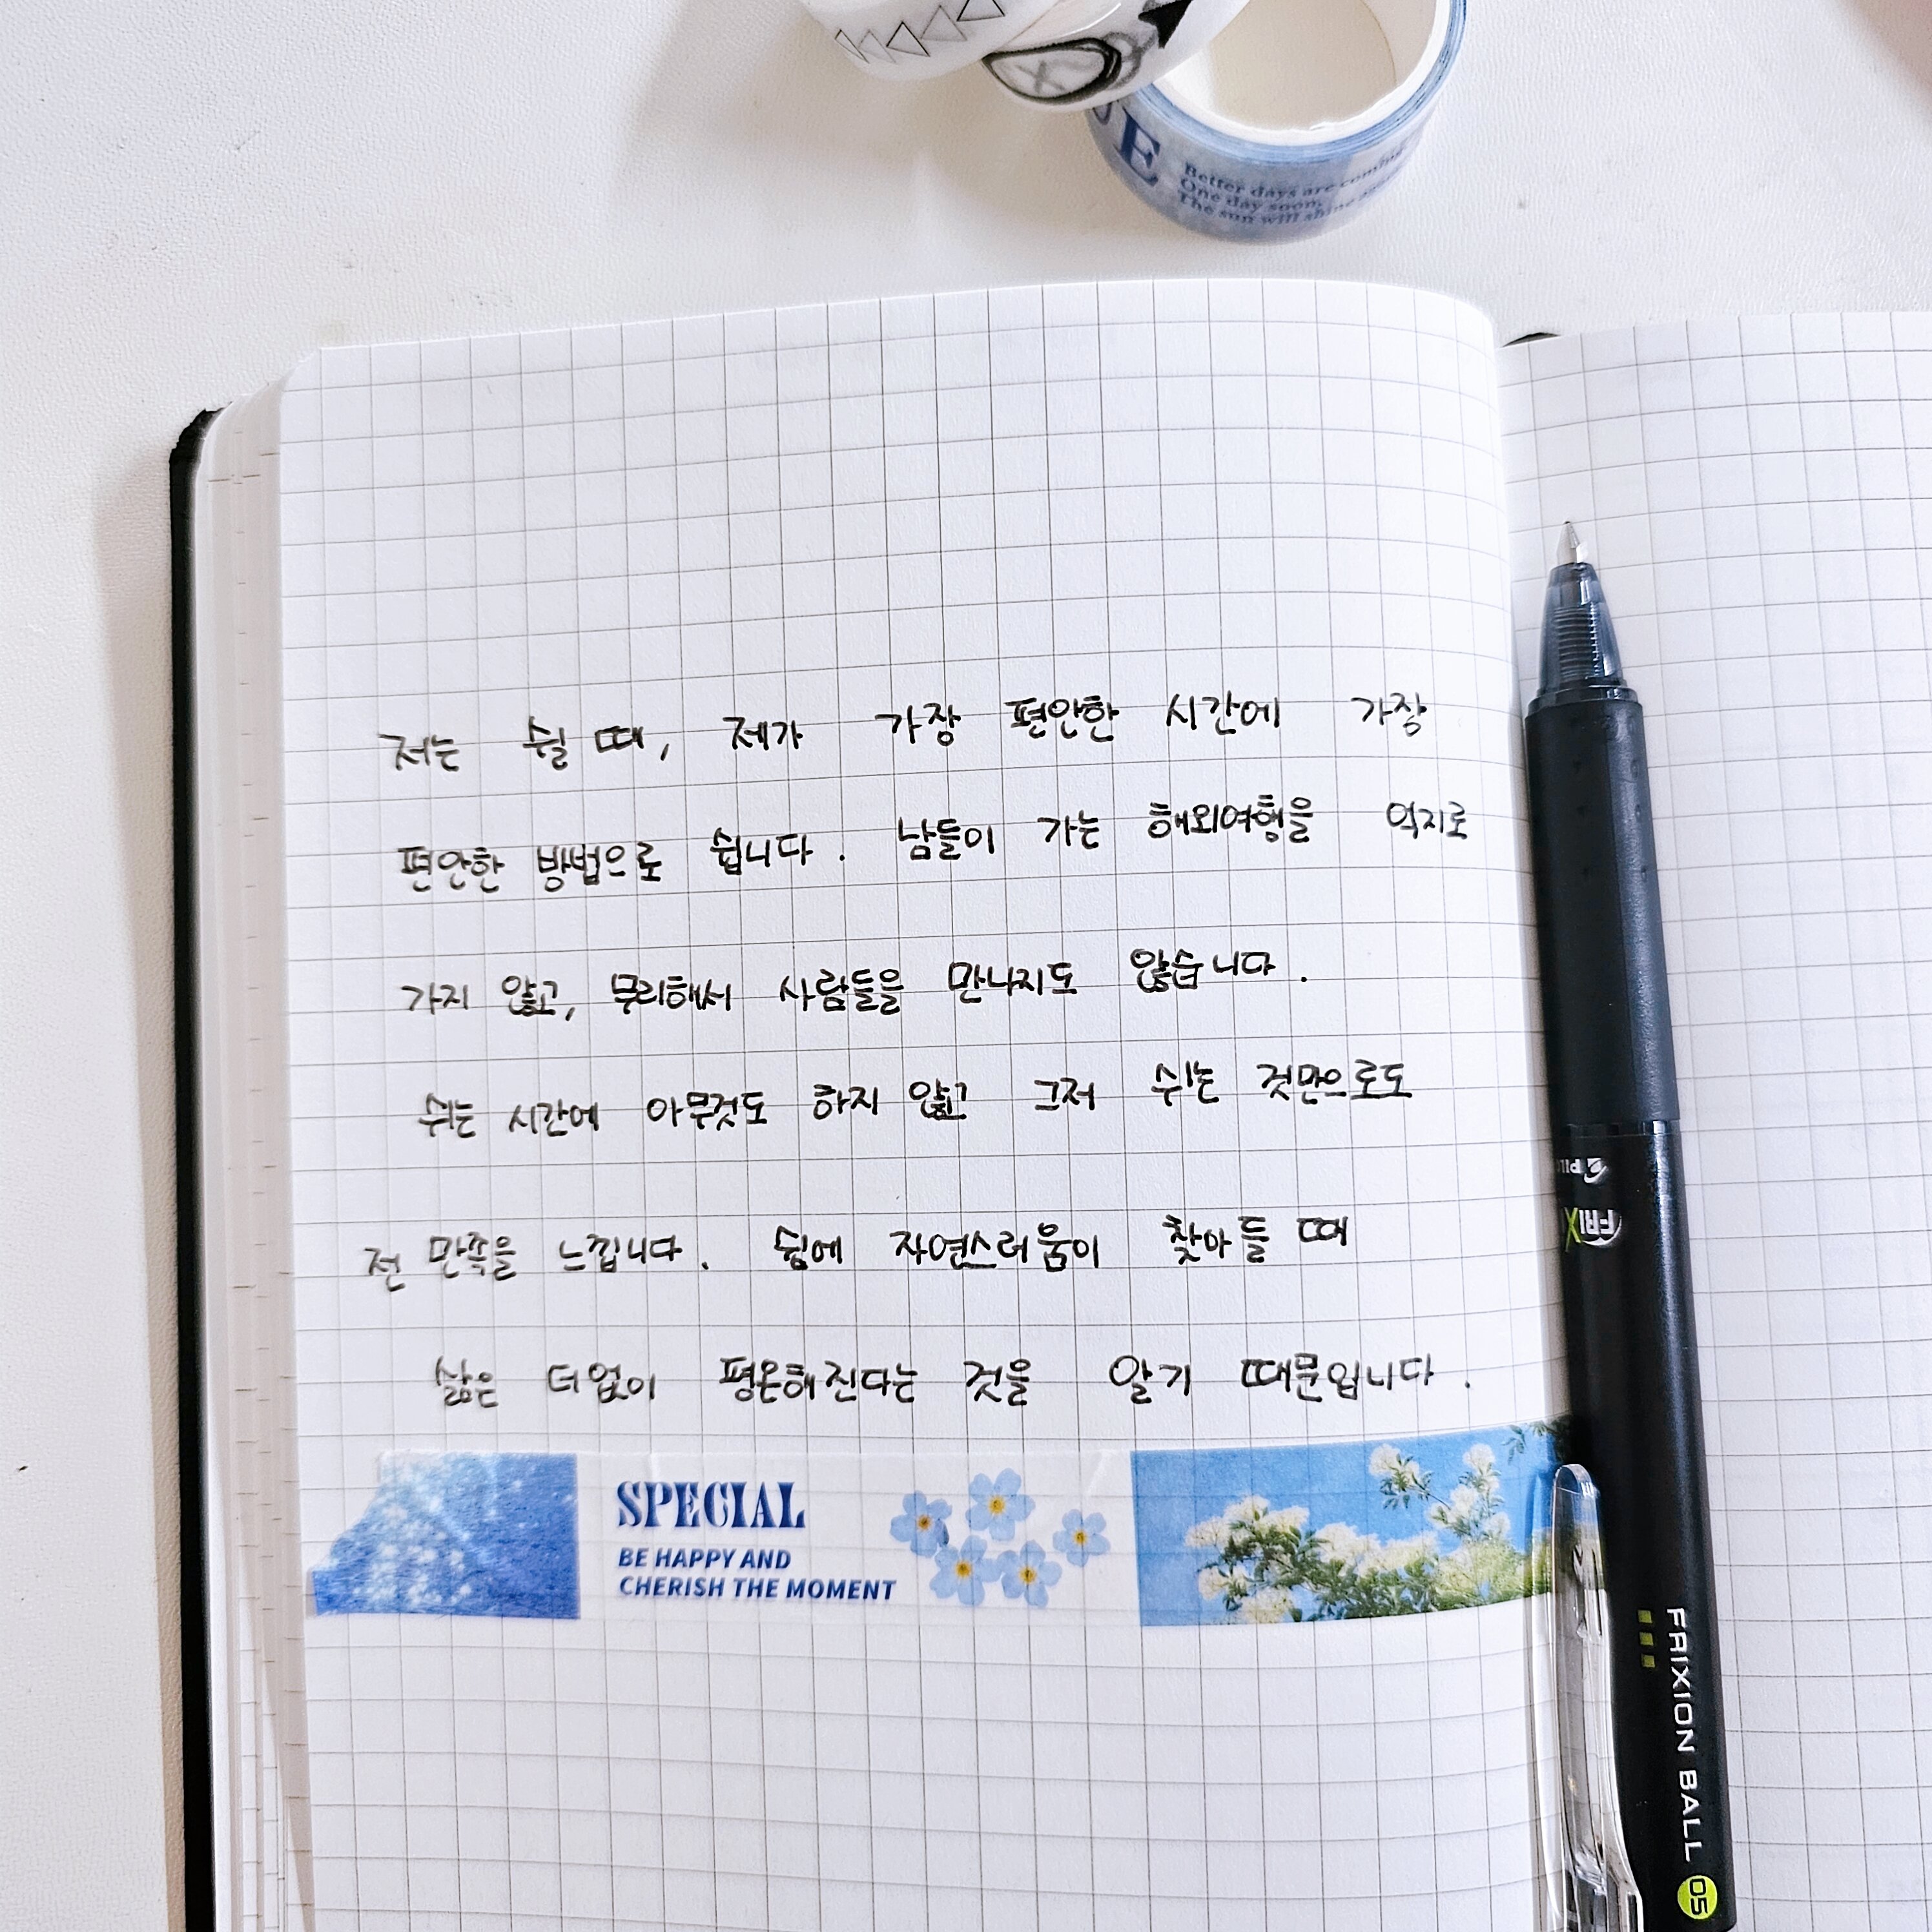 VE
Better days are coming
One day soon,
The sun will shine
저는 쉴 때, 제가 가장 편안한 시간에 가장
편안한 방법으로 쉽니다. 남들이 가는 해외여행을 억지로
가지 않고, 무리해서 사람들을 만나지도 않습니다.
쉬는 시간에 아무것도 하지 않고 그저 쉬는 것만으로도
전 만족을 느낍니다. 쉼에 자연스러움이 찾아들 때
삶은 더없이 평온해진다는 것을 알기 때문입니다.
SPECIAL
BE HAPPY AND
CHERISH THE MOMENT
FRIX
FRIXION BALL 05